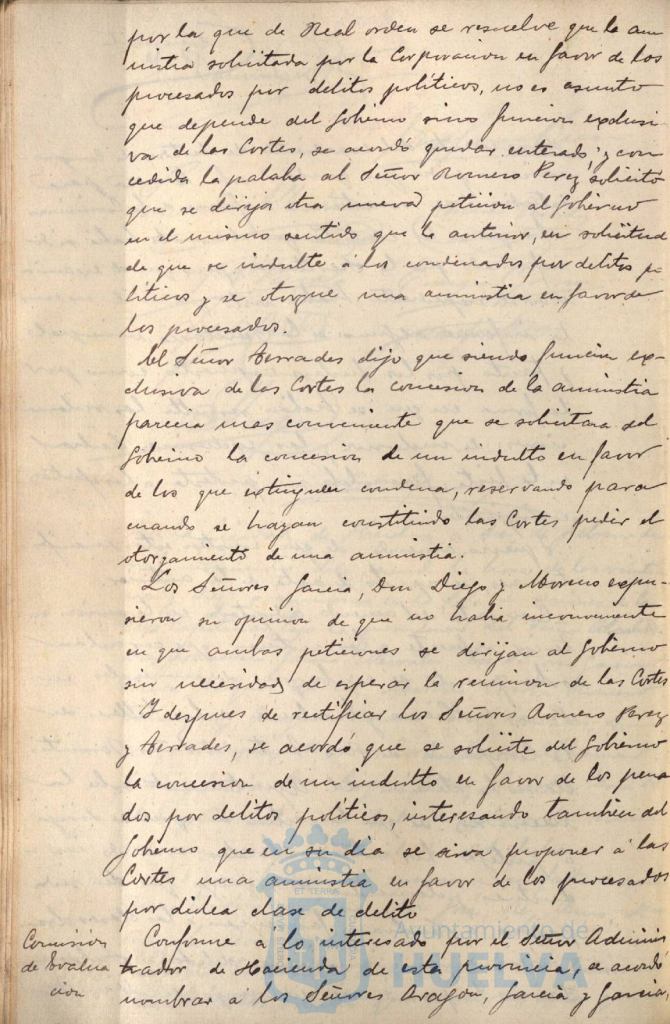 por la que de Real orden se resuelve que la am
nistia solicitada por la Corporacion en favor de los
procesados por delitos politicos, no es asunto
que depende del Gobierno sino funcion exclusi
va de las Cortes, se acordó quedar enterado; y con
cedida la palaba al Señor Romero Perez solicitó
que se dirija otra nueva peticion al Gobierno
en el mismo sentido que la anterior, en solicitud
de que se indulte á los condenados por delitos po
liticos y se otorgue una amnistia en favor de
los procesados.
El Señor Terrades dijo que siendo funcion ex-
clusiva de las Cortes la concesion de la amnistia
parecia mas conveniente que se solicitara del
Gobierno la concesion de un indulto en favor
de los que extinguen condena, reservando para
cuando se hayan constituido las Cortes pedir el
otorgamiento de una amnistia.
Los Señores Garcia, Don Diego y Moreno expu-
sieron su opinion de que no habia inconveniente
en que ambas peticiones se dirijan al Gobierno
sin necesidad de esperar la reunion de las Cortes
Y despues de rectificar los Señores Romero Perez
y Terrades, se acordó que se solicite del Gobierno
la concesion de un indulto en favor de los pena
dos por delitos politicos, interesando tambien del
Gobierno que en su dia se sirva proponer á las
Cortes una amnistia en favor de los procesados
por dicha clase de delito
Comision
de Evalua
cion
Conforme á lo interesado por el Señor Adminis
trador de Hacienda de esta provincia, se acordó
nombrar á los Señores Aragon, Garcia y Garcia,
ET TERRA
Ayuntamiento de
HUELVA